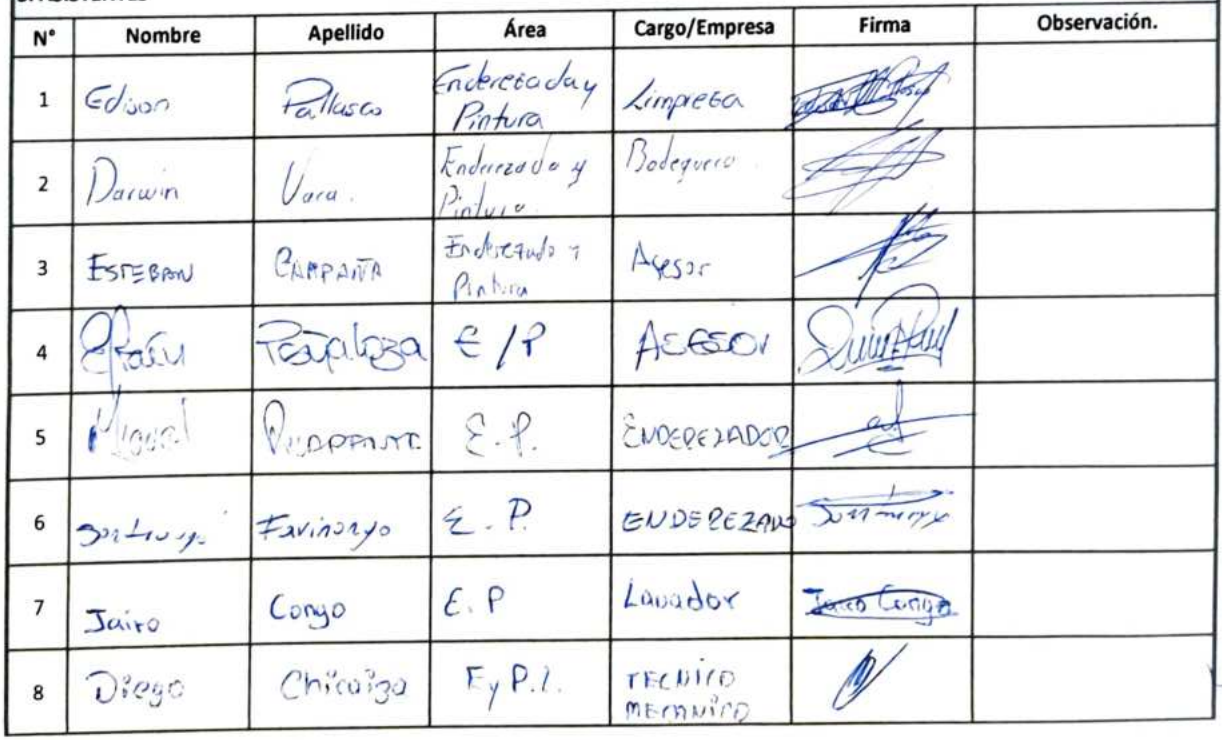 N° Nombre Apellido Área Cargo/Empresa Firma Observación.
1 Edison Pallasco Enderezada y Pintura Limpieza
2 Darwin Vaca. Enderezado y Pintura. Bodeguero.
3 ESTEBAN CAMPAÑA Enderezado y Pintura Asesor
4 Efraín Peñaloza E/P ASESOR
5 Miguel E.P. ENDEREZADOR
6 E.P. ENDEREZADO
7 Jairo Congo E.P Lavador Jairo Congo
8 Diego Chicaiza E y P. TECNICO MECANICO